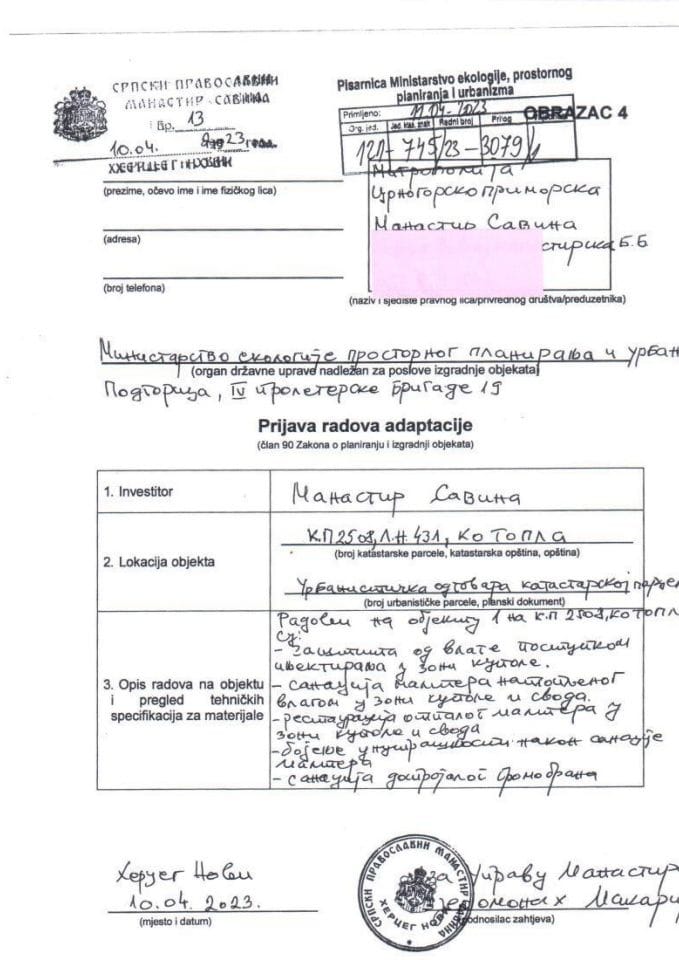 СРПСКИ ПРАВОСЛАВНИ
МАНАСТИР САВИНА
Бр. 13
10.04. 2023 год.
ХЕРЦЕГ НОВИ
(prezime, očevo ime i ime fizičkog lica)
(adresa)
(broj telefona)
Pisarnica Ministarstvo ekologije, prostornog
planiranja I urbanizma
Primljeno: 11.04.2023
Org. jed. Jed. klas. znak Redni broj Prilog
OBRAZAC 4
120-745/23-3079/1
Митрополија
Црногорско приморска
Манастир Савина
стирска Б.Б
(naziv i sjedište pravnog lica/privrednog društva/preduzetnika)
Министарство екологије просторног планирања и урбан
(organ državne uprave nadležan za poslove izgradnje objekata)
Подгорица, IV Пролетерске Бригаде 19
Prijava radova adaptacije
(član 90 Zakona o planiranju i izgradnji objekata)
1. Investitor
Манастир Савина
2. Lokacija objekta
К.П 2508, Л.Н. 431, КО ТОПЛА
(broj katastarske parcele, katastarska opština, opština)
Урбанистичка одговара катастарској парцел
(broj urbanističke parcele, planski dokument)
3. Opis radova na objektu
i pregled tehničkih
specifikacija za materijale
Радови на објекту 1 на К.П 2508, КО ТОПЛ
су:
- Заштита од влаге поступком
ињектирања у зони куполе.
- санација малтера натопљеног
влагом у зони куполе и свода.
- рестаурација отпалог малтера у
зони куполе и свода
- бојење унутрашности након санације
малтера
- санација дотрајалог громобрана
Херцег Нови
10.04.2023.
(mjesto i datum)
За Управу Манастир
јеромонах Макари
(podnosilac zahtjeva)
СРПСКИ ПРАВОСЛАВНИ МАНАСТИР САВИНА
ХЕРЦЕГ НОВИ